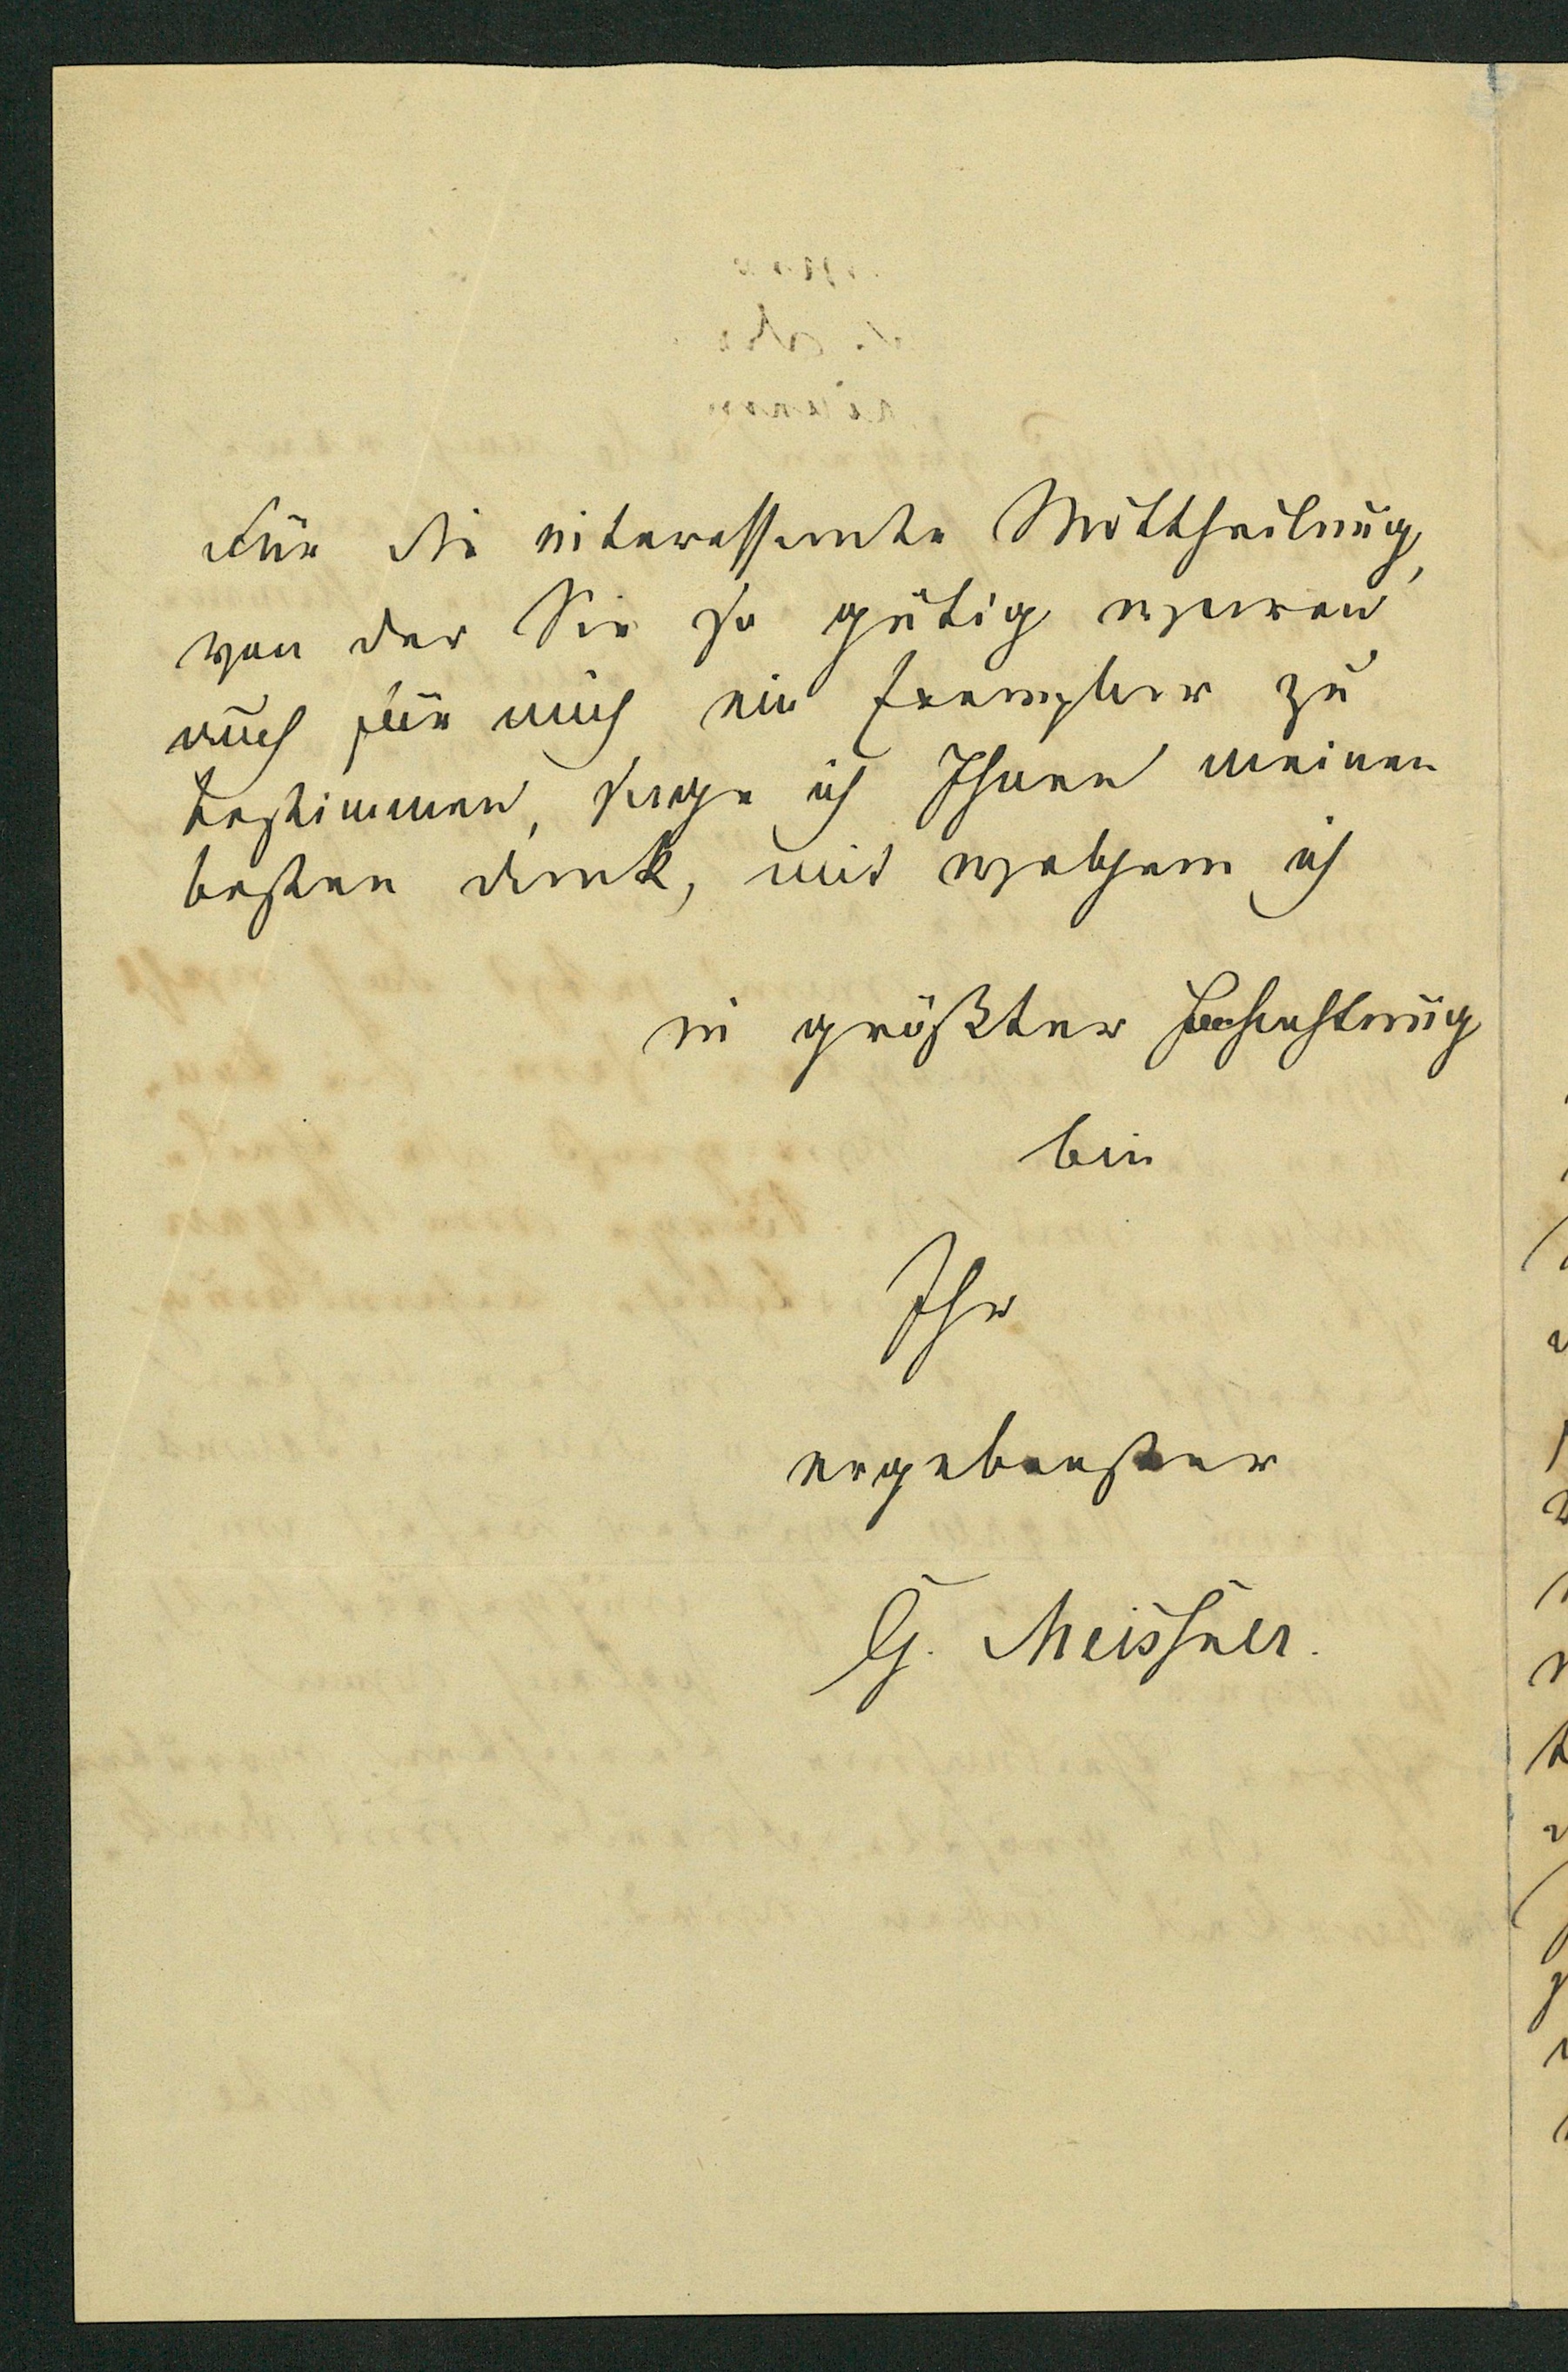 Für die interessante Mittheilung,
von der Sie so gütig waren
auch für mich ein Exemplar zu
bestimmen, sage ich Ihnen meinen
besten Dank, mit welchem ich
in größter Hochachtung
bin
Ihr
ergebenster
G. Meissner.